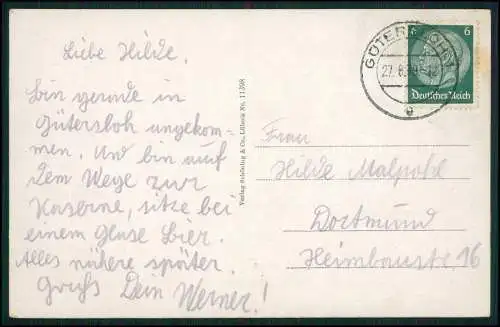 Liebe Hilde,
bin gerade in
Gütersloh angekom-
men. Und bin auf
dem Wege zur
Kaserne, sitze bei
einem Glase Bier.
Alles nähere später.
Gruß Dein Werner!
Verlag Schöning & Co., Lübeck No. 11308
GÜTERSLOH
27.8.
e
6
Deutsches Reich
Frau
Hilde
Dortmund
16